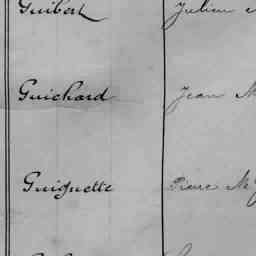 Guibert Julien
Guichard Jean M
Guignette Pierre M